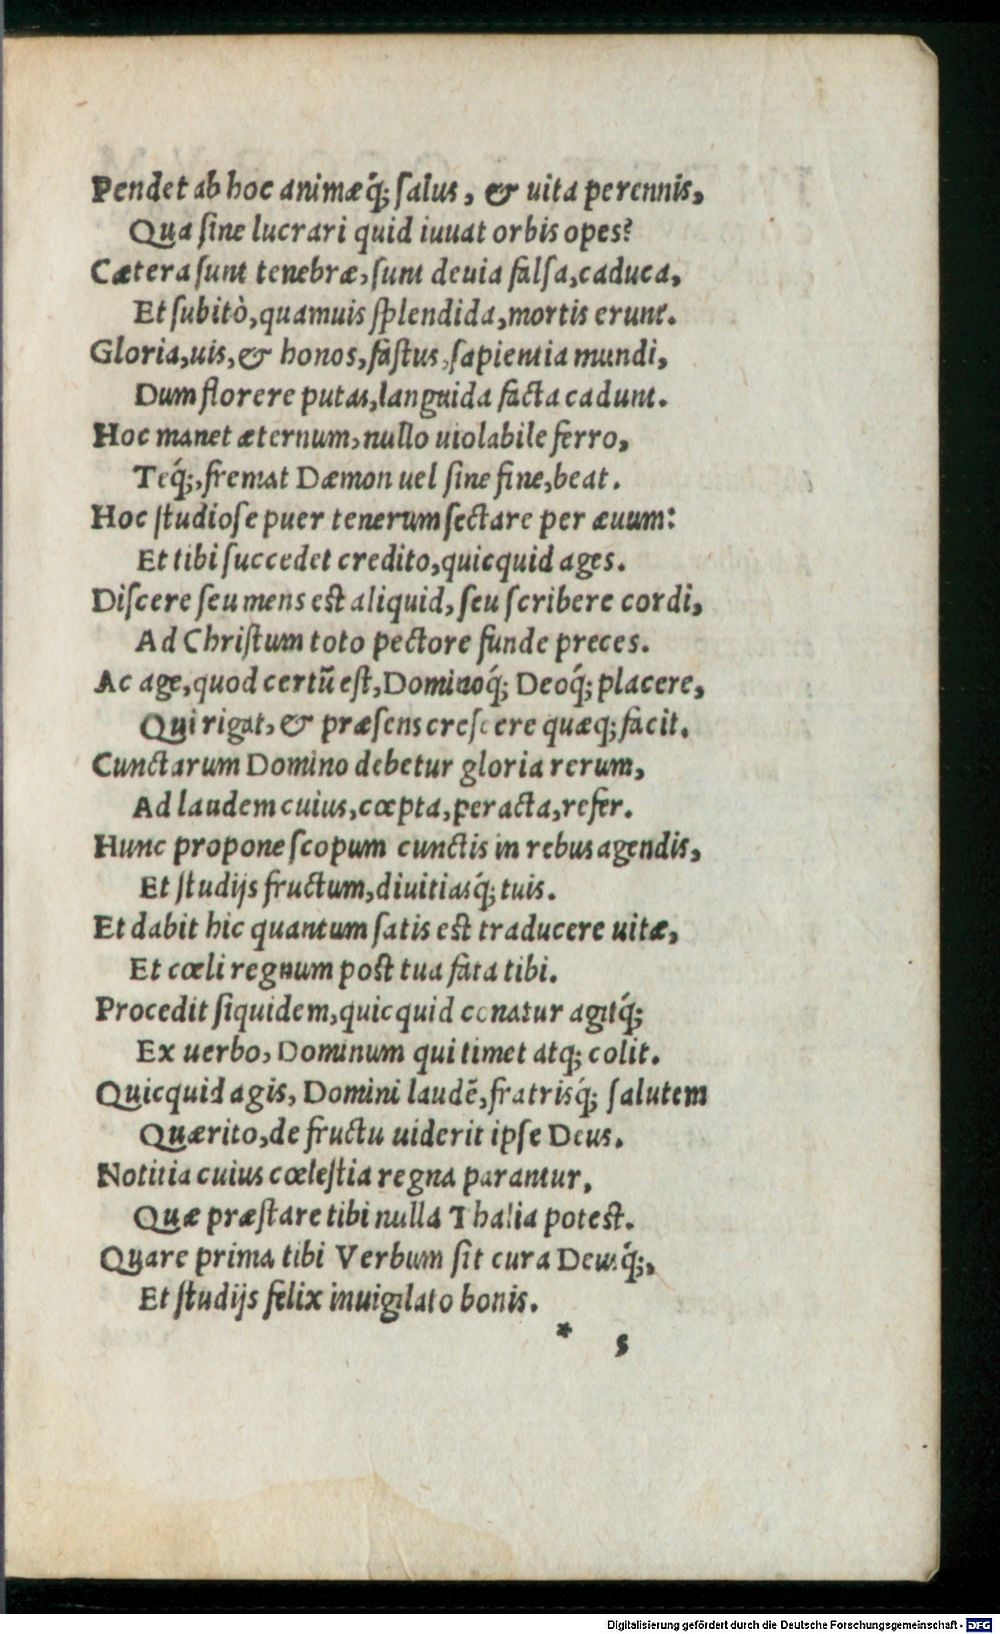 Pendet ab hoc animæq́; ſalus, & uita perennis,
Qua ſine lucrari quid iuuat orbis opes?
Cætera ſunt tenebræ, ſunt deuia falſa, caduca,
Et ſubitò, quamuis ſplendida, mortis erunt.
Gloria, uis, & honos, faſtus, ſapientia mundi,
Dum florere putas, languida facta cadunt.
Hoc manet æternum, nullo uiolabile ferro,
Teq́;, fremat Dæmon uel ſine fine, beat.
Hoc ſtudioſe puer tenerum ſectare per æuum:
Et tibi ſuccedet credito, quicquid ages.
Diſcere ſeu mens eſt aliquid, ſeu ſcribere cordi,
Ad Chriſtum toto pectore funde preces.
Ac age, quod certũ eſt, Dominoq́; Deoq́; placere,
Qui rigat, & præſens creſcere quæq; facit.
Cunctarum Domino debetur gloria rerum,
Ad laudem cuius, cœpta, peracta, refer.
Hunc propone ſcopum cunctis in rebus agendis,
Et ſtudijs fructum, diuitiasq́; tuis.
Et dabit hic quantum ſatis eſt traducere uitæ,
Et cœli regnum poſt tua fata tibi.
Procedit ſiquidem, quicquid conatur agitq́;
Ex uerbo, Dominum qui timet atq; colit.
Quicquid agis, Domini laudẽ, fratrisq́; ſalutem
Quærito, de fructu uiderit ipſe Deus.
Notitia cuius cœleſtia regna parantur,
Quæ præſtare tibi nulla Thalia poteſt.
Quare prima tibi Verbum ſit cura Deusq́;,
Et ſtudijs felix inuigilato bonis.
* 5
Digitalisierung gefördert durch die Deutsche Forschungsgemeinschaft - DFG